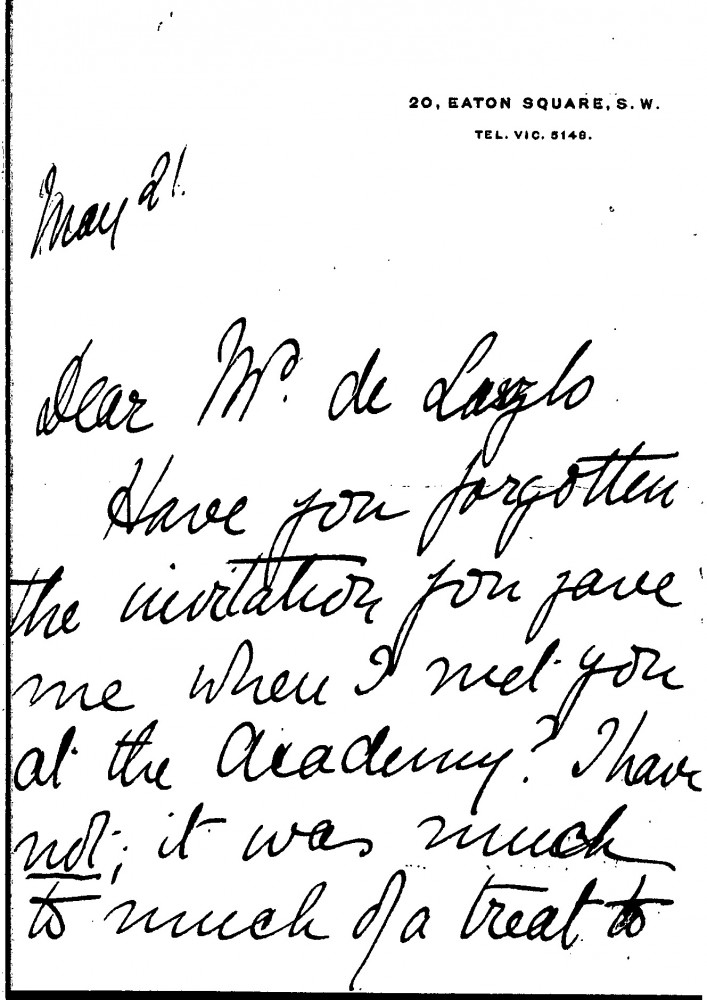 20, EATON SQUARE, S.W.
TEL. VIC. 5148.
May 21.
Dear Mr. de Laszlo
Have you forgotten
the invitation you gave
me when I met you
at the Academy? I have
not; it was much
to much of a treat to